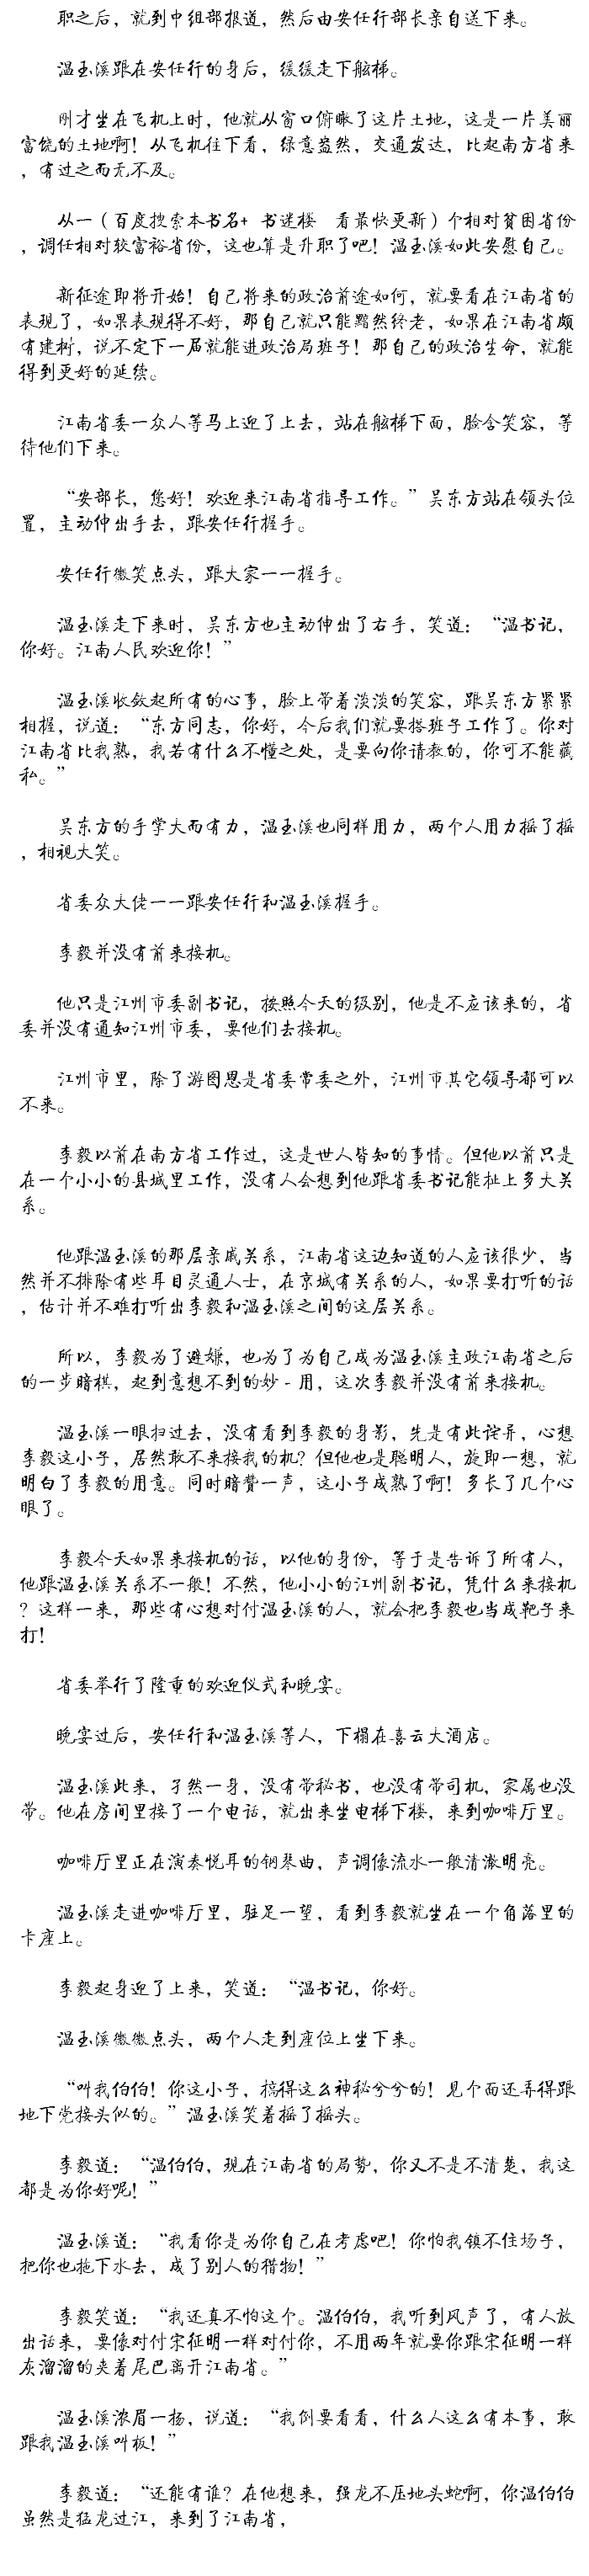 职之后，就到中组部报道，然后由安任行部长亲自送下来。
温玉溪跟在安任行的身后，缓缓走下舷梯。
刚才坐在飞机上时，他就从窗口俯瞰了这片土地，这是一片美丽
富饶的土地啊！从飞机往下看，绿意盎然，交通发达，比起南方省来
，有过之而无不及。
从一（百度搜索本书名+　书迷楼　看最快更新）个相对贫困省份
，调任相对较富裕省份，这也算是升职了吧！温玉溪如此安慰自己。
新征途即将开始！自己将来的政治前途如何，就要看在江南省的
表现了，如果表现得不好，那自己就只能黯然终老，如果在江南省颇
有建树，说不定下一届就能进政治局班子！那自己的政治生命，就能
得到更好的延续。
江南省委一众人等马上迎了上去，站在舷梯下面，脸含笑容，等
待他们下来。
“安部长，您好！欢迎来江南省指导工作。”吴东方站在领头位
置，主动伸出手去，跟安任行握手。
安任行微笑点头，跟大家一一握手。
温玉溪走下来时，吴东方也主动伸出了右手，笑道：“温书记，
你好。江南人民欢迎你！”
温玉溪收敛起所有的心事，脸上带着淡淡的笑容，跟吴东方紧紧
相握，说道：“东方同志，你好，今后我们就要搭班子工作了。你对
江南省比我熟，我若有什么不懂之处，是要向你请教的，你可不能藏
私。”
吴东方的手掌大而有力，温玉溪也同样用力，两个人用力摇了摇
，相视大笑。
省委众大佬一一跟安任行和温玉溪握手。
李毅并没有前来接机。
他只是江州市委副书记，按照今天的级别，他是不应该来的，省
委并没有通知江州市委，要他们去接机。
江州市里，除了游图恩是省委常委之外，江州市其它领导都可以
不来。
李毅以前在南方省工作过，这是世人皆知的事情。但他以前只是
在一个小小的县城里工作，没有人会想到他跟省委书记能扯上多大关
系。
他跟温玉溪的那层亲戚关系，江南省这边知道的人应该很少，当
然并不排除有些耳目灵通人士，在京城有关系的人，如果要打听的话
，估计并不难打听出李毅和温玉溪之间的这层关系。
所以，李毅为了避嫌，也为了为自己成为温玉溪主政江南省之后
的一步暗棋，起到意想不到的妙-用，这次李毅并没有前来接机。
温玉溪一眼扫过去，没有看到李毅的身影，先是有此诧异，心想
李毅这小子，居然敢不来接我的机？但他也是聪明人，旋即一想，就
明白了李毅的用意。同时暗赞一声，这小子成熟了啊！多长了几个心
眼了。
李毅今天如果来接机的话，以他的身份，等于是告诉了所有人，
他跟温玉溪关系不一般！不然，他小小的江州副书记，凭什么来接机
？这样一来，那些有心想对付温玉溪的人，就会把李毅也当成靶子来
打！
省委举行了隆重的欢迎仪式和晚宴。
晚宴过后，安任行和温玉溪等人，下榻在喜云大酒店。
温玉溪此来，孑然一身，没有带秘书，也没有带司机，家属也没
带。他在房间里接了一个电话，就出来坐电梯下楼，来到咖啡厅里。
咖啡厅里正在演奏悦耳的钢琴曲，声调像流水一般清澈明亮。
温玉溪走进咖啡厅里，驻足一望，看到李毅就坐在一个角落里的
卡座上。
李毅起身迎了上来，笑道：“温书记，你好。
温玉溪微微点头，两个人走到座位上坐下来。
“叫我伯伯！你这小子，搞得这么神秘兮兮的！见个面还弄得跟
地下党接头似的。”温玉溪笑着摇了摇头。
李毅道：“温伯伯，现在江南省的局势，你又不是不清楚，我这
都是为你好呢！”
温玉溪道：“我看你是为你自己在考虑吧！你怕我镇不住场子，
把你也拖下水去，成了别人的猎物！”
李毅笑道：“我还真不怕这个。温伯伯，我听到风声了，有人放
出话来，要像对付宋征明一样对付你，不用两年就要你跟宋征明一样
灰溜溜的夹着尾巴离开江南省。”
温玉溪浓眉一扬，说道：“我倒要看看，什么人这么有本事，敢
跟我温玉溪叫板！”
李毅道：“还能有谁？在他想来，强龙不压地头蛇啊，你温伯伯
虽然是猛龙过江，来到了江南省，